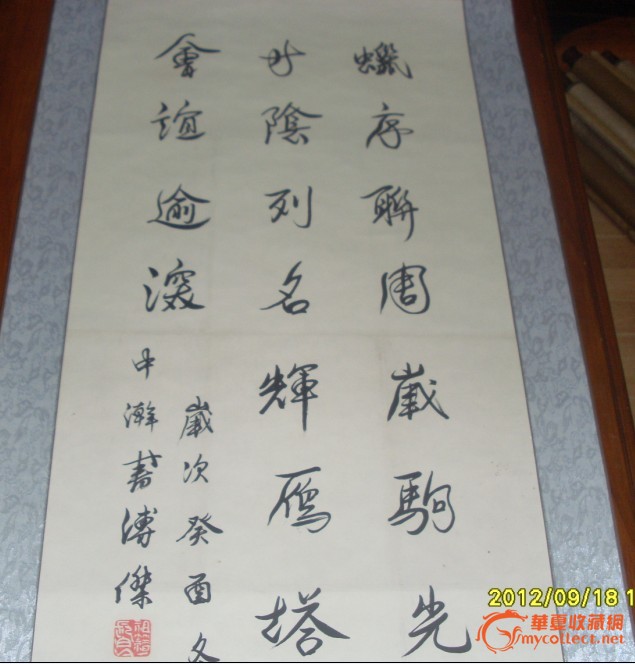 蠟序聯周歲駒光
陰列名輝雁塔
會誼逾深
歲次癸酉冬
中澣書溥傑
2012/09/18 1
華夏收藏網
mycollect.net